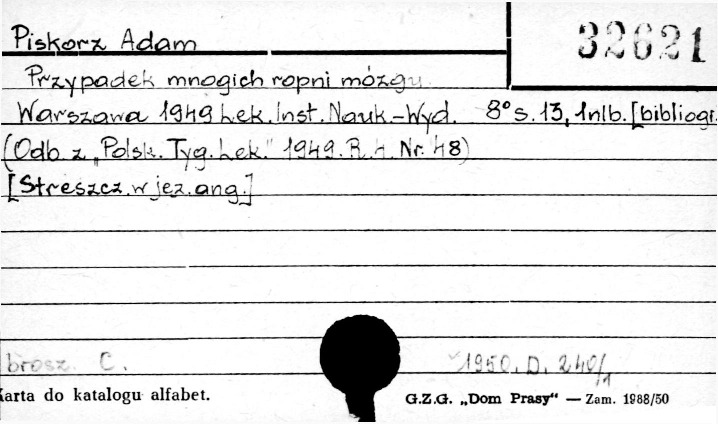 Piskorz Adam
32621
Przypadek mnogich ropni mózgu.
Warszawa 1949 Lek. Inst. Nauk.-Wyd. 8° s. 13, 1nlb. [bibliogr.
(Odb. z „Polsk. Tyg. Lek." 1949. R. 4. Nr. 48)
[Streszcz. w jęz. ang.]
brosz. C.
1950. D. 240/1
Karta do katalogu alfabet.
G.Z.G. „Dom Prasy“ — Zam. 1988/50